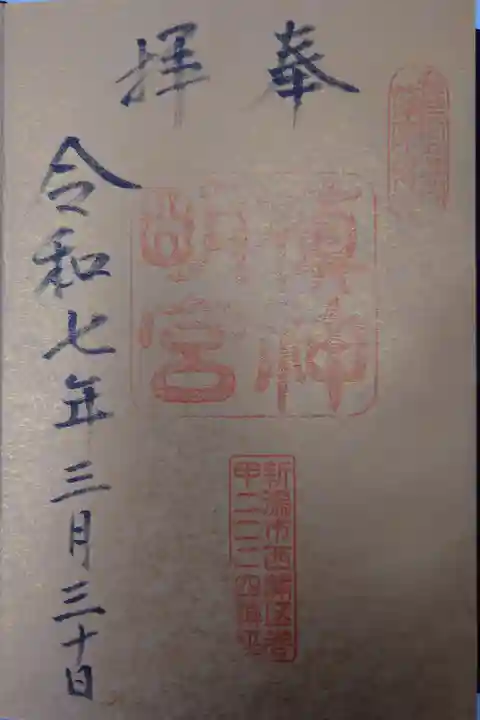 奉拝
眞神
明宮
新潟市西蒲区巻
甲二二二四
令和七年三月三十日